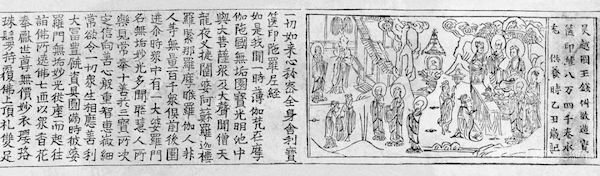 吳越國王錢俶敬造寶
篋印經八万四千卷永
充供養時乙丑歲記
一切如來心祕密全身舍利寶
篋印陀羅尼經
如是我聞一時薄伽梵在摩
伽陀國無垢園寶光明池中
與大菩薩衆及大聲聞僧天
龍夜叉揵闥婆阿蘇羅迦樓
羅緊那羅摩睺羅伽人非
人等無量百千衆俱前後圍
遶尒時衆中有一大婆羅門
名無垢妙光多聞聰慧人所
樂見常奉十善於三寶所決
定信向善心殷重智慧微細
常欲令一切衆生相應善利
大富豐饒資具圓滿時彼婆
羅門無垢妙光從座而起往
詣佛所遶佛七匝以衆香花
奉獻世尊無價妙衣瓔珞
珠鬘持覆佛上頂礼雙足